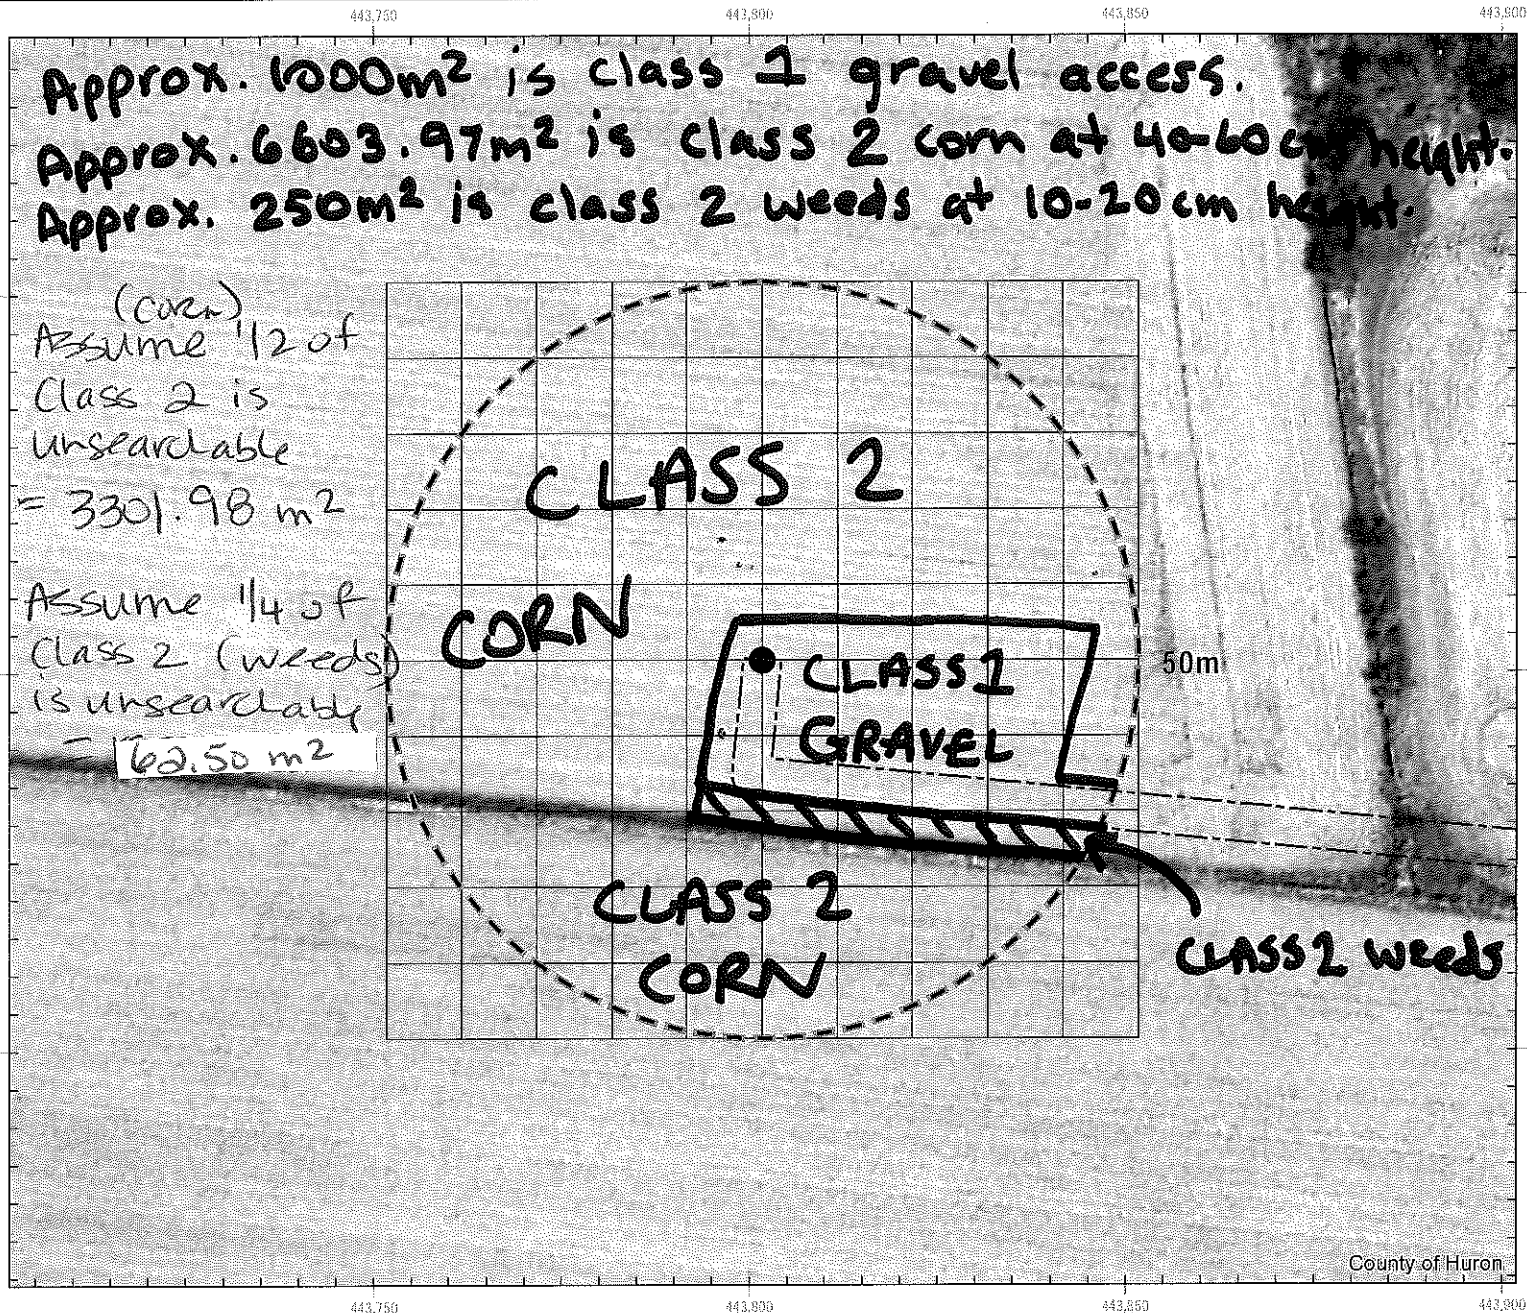 443,750 443,800 443,850 443,900
Approx. 1000m² is class 1 gravel access.
Approx. 6603.97m² is class 2 corn at 40-60cm height.
Approx. 250m² is class 2 weeds at 10-20cm height.
(corn)
Assume 1/2 of
Class 2 is
unsearchable
= 3301.98 m²
Assume 1/4 of
Class 2 (weeds)
is unsearchable
= 62.50 m²
CLASS 2
CORN
CLASS 1
GRAVEL
50m
CLASS 2
CORN
CLASS 2 weeds
County of Huron
443,750 443,800 443,850 443,900